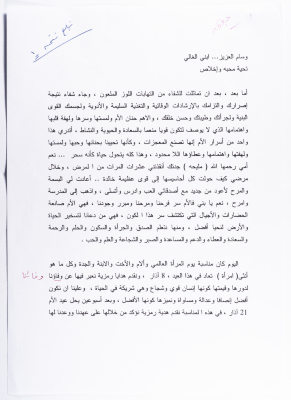 وسام العزيز... ابني الغالي
تحية محبة وإخلاص
أما بعد ، بعد ان تماثلت للشفاء من التهابات اللوز الملعون ، وجاء شفاء نتيجة
إصرارك والتزامك بالإرشادات الوقائية والتغذية السليمة والأدوية وتجسمك القوى
البنية وتجرأتك وطيبتك وحسن خلقك ، والاهم حنان الأم ولمستها وسرها ولهفة قلبها
واهتمامها الذي لا يوصف لتكون قويا منعما بالسعادة والحيوية والنشاط ، أتدري هذا
واحد من أسرار الأم إنها تصنع المعجزات ، وكأنها تحيينا بحنانها وحبها ولمستها
ولهفتها واهتمامها وعطاؤها اللا محدود ، وهذا كله يتحول حياة كأنه سحر ... نعم
أمي رحمها الله ( مليحه ) جدتك أنقذتني عشرات المرات من المرض ، وخلال
مرضي كيف حولت كل أحاسيسها إلى قوى عظيمة خالدة .. أعادت لي البسمة
والمرح لأعود من جديد مع أصدقائي العب وادرس وأتسلى ، واذهب إلى المدرسة
وامرح ، نعم يا بني فالأم سر فرحنا ومرحنا ومبرر وجودنا ، فهي الأم صانعة
الحضارات والأجيال التي تكتشف سر هذا الكون ، فهي من دعانا لتسخير الحياة
والأرض لنحيا أفضل ، ومنها نتعلم الصدق والجرأة والسكون والحلم والرحمة
والسعادة والعطاء والدعم والمساعدة والصبر والشجاعة والعلم والحب .
اليوم كان مناسبة يوم المرأة العالمي والأم والأخت والابنة والجدة وكل ما هو
أنثى( امرأة ) تعاد في هذا العيد ، 8 آذار ، ونقدم هدايا رمزية نعبر فيها عن وفاؤنا
لدورها وقيمتها كونها إنسان قوي وشجاع وهي شريكة في الحياة ، وعلينا ان نكون
أفضل إنصافا وعدالة ومساواة ونميزها كونها الأفضل ، وبعد أسبوعين يحل عيد الأم
21 آذار ، في هذه المناسبة نقدم هدية رمزية نؤكد من خلالها على عهدنا ووعدنا لها